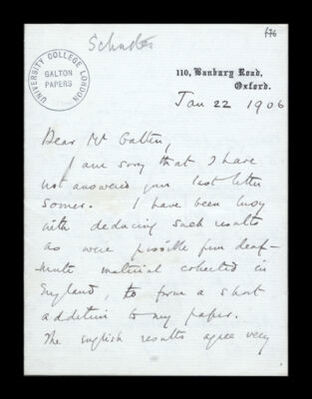 Schuster
UNIVERSITY COLLEGE LONDON
GALTON
PAPERS
110, Banbury Road,
Oxford.
Jan 22 1906
Dear Mr Galton,
I am sorry that I have
not answered your last letter
sooner. I have been busy
with deducing such results
as were possible from deaf-
mute material collected in
England, to form a short
addition to my paper.
The english results agree very